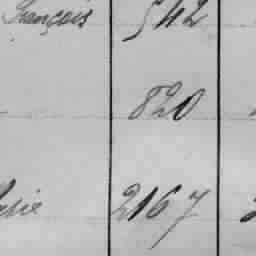 François 542
820
2167